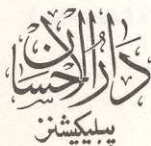 دارالاحسان
پبلیکیشنز